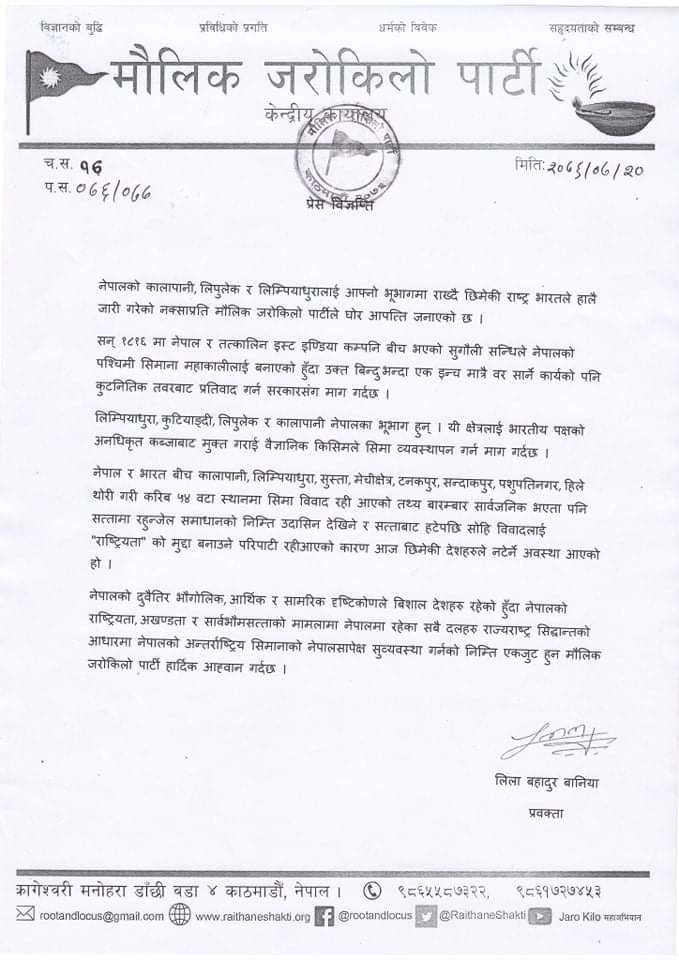 विज्ञानको बुद्धि प्रविधिको प्रगति धर्मको विवेक सहृदयताको सम्बन्ध
मौलिक जरोकिलो पार्टी
केन्द्रीय कार्यालय
मौलिक जरोकिलो पार्टी
काठमाडौं २०७२
च.स. १६
मिति: २०७६/०७/२०
प.स. ०७६/०७७
प्रेस विज्ञप्ति
नेपालको कालापानी, लिपुलेक र लिम्पियाधुरालाई आफ्नो भूभागमा राख्दै छिमेकी राष्ट्र भारतले हालै
जारी गरेको नक्साप्रति मौलिक जरोकिलो पार्टीले घोर आपत्ति जनाएको छ ।
सन् १८१६ मा नेपाल र तत्कालिन इस्ट इण्डिया कम्पनि बीच भएको सुगौली सन्धिले नेपालको
पश्चिमी सिमाना महाकालीलाई बनाएको हुँदा उक्त बिन्दुभन्दा एक इन्च मात्रै वर सार्ने कार्यको पनि
कुटनितिक तवरबाट प्रतिवाद गर्न सरकारसंग माग गर्दछ ।
लिम्पियाधुरा, कुटियाङ्दी, लिपुलेक र कालापानी नेपालका भूभाग हुन् । यी क्षेत्रलाई भारतीय पक्षको
अनधिकृत कब्जाबाट मुक्त गराई वैज्ञानिक किसिमले सिमा व्यवस्थापन गर्न माग गर्दछ ।
नेपाल र भारत बीच कालापानी, लिम्पियाधुरा, सुस्ता, मेचीक्षेत्र, टनकपुर, सन्दाकपुर, पशुपतिनगर, हिले
थोरी गरी करिब ५४ वटा स्थानमा सिमा विवाद रही आएको तथ्य बारम्बार सार्वजनिक भएता पनि
सत्तामा रहुन्जेल समाधानको निम्ति उदासिन देखिने र सत्ताबाट हटेपछि सोहि विवादलाई
"राष्ट्रियता" को मुद्दा बनाउने परिपाटी रहीआएको कारण आज छिमेकी देशहरुले नटेर्ने अवस्था आएको
हो ।
नेपालको दुवैतिर भौगोलिक, आर्थिक र सामरिक दृष्टिकोणले बिशाल देशहरु रहेको हुँदा नेपालको
राष्ट्रियता, अखण्डता र सार्वभौमसत्ताको मामलामा नेपालमा रहेका सबै दलहरु राज्यराष्ट्र सिद्धान्तको
आधारमा नेपालको अन्तर्राष्ट्रिय सिमानाको नेपालसापेक्ष सुव्यवस्था गर्नको निम्ति एकजुट हुन मौलिक
जरोकिलो पार्टी हार्दिक आह्वान गर्दछ ।
लिला बहादुर बानिया
प्रवक्ता
कागेश्वरी मनोहरा डाँछी वडा ४ काठमाडौं, नेपाल । ९८६५५८७३२२, ९८६१७२७४५३
rootandlocus@gmail.com www.raithaneshakti.org @rootandlocus @RaithaneShakti Jaro Kilo महाअभियान